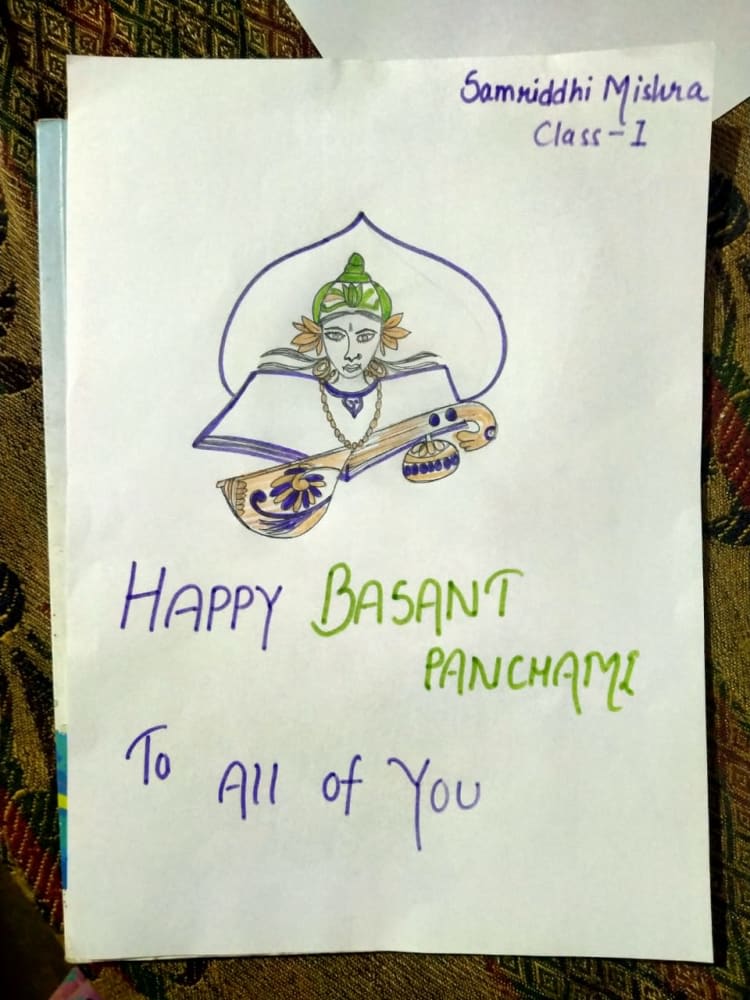 Samriddhi Mishra
Class-I
HAPPY BASANT
PANCHAMI
To All of You